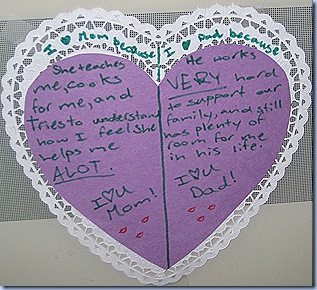 I ♥ Mom because
She teaches
me, cooks
for me, and
Tries to understand
how I feel she
helps me
ALOT.
I ♥ U
Mom!
I ♥ Dad because
He works
VERY hard
to support our
family, and still
has plenty of
room for me
in his life.
I ♥ U
Dad!